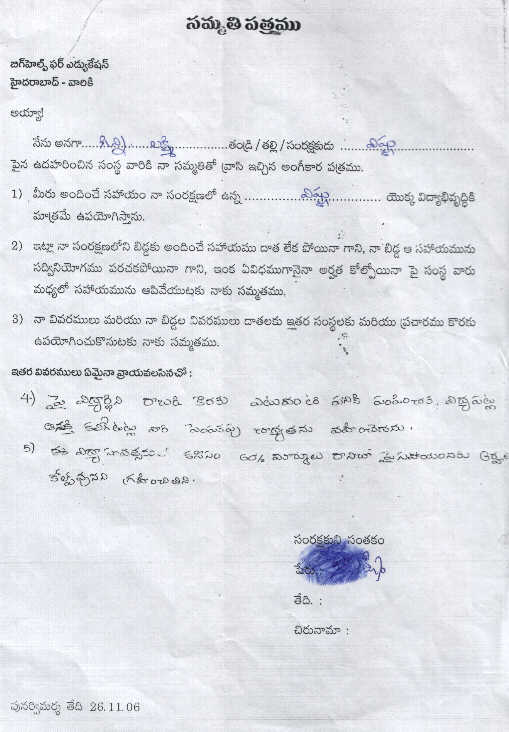 సమ్మతి పత్రము
బిగ్‌హెల్ప్ ఫర్ ఎడ్యుకేషన్
హైదరాబాద్ - వారికి
అయ్యా!
నేను అనగా..... లక్ష్మి ..........తండ్రి / తల్లి / సంరక్షకుడు ..... విష్ణు ..........
పైన ఉదహరించిన సంస్థ వారికి నా సమ్మతితో వ్రాసి ఇచ్చిన అంగీకార పత్రము.
1) మీరు అందించే సహాయం నా సంరక్షణలో ఉన్న .......... విష్ణు .......... యొక్క విద్యాభివృద్ధికి
మాత్రమే ఉపయోగిస్తాను.
2) ఇట్లా నా సంరక్షణలోని బిడ్డకు అందించే సహాయము దాత లేక పోయినా గాని, నా బిడ్డ ఆ సహాయమును
సద్వినియోగము పరచకపోయినా గాని, ఇంక ఏవిధముగానైనా అర్హత కోల్పోయినా పై సంస్థ వారు
మధ్యలో సహాయమును ఆపివేయుటకు నాకు సమ్మతము.
3) నా వివరములు మరియు నా బిడ్డల వివరములు దాతలకు ఇతర సంస్థలకు మరియు ప్రచారము కొరకు
ఉపయోగించుకొనుటకు నాకు సమ్మతము.
ఇతర వివరములు ఏమైనా వ్రాయవలసినచో :
4) పై విద్యార్థిని రాబడి కొరకు ఎటువంటి పనికి పంపించక, విద్యపట్ల
ఆసక్తి కలిగేటట్లు బాధ్యతను వహించెదను.
5) ఈ విద్యా కనీసం 60% మార్కులు రానిచో పై సహాయమునకు
కోల్పోవునని గ్రహించితిని.
సంరక్షకుని సంతకం
పేరు
తేది. :
చిరునామా :
పునర్విమర్శ తేది 26.11.06